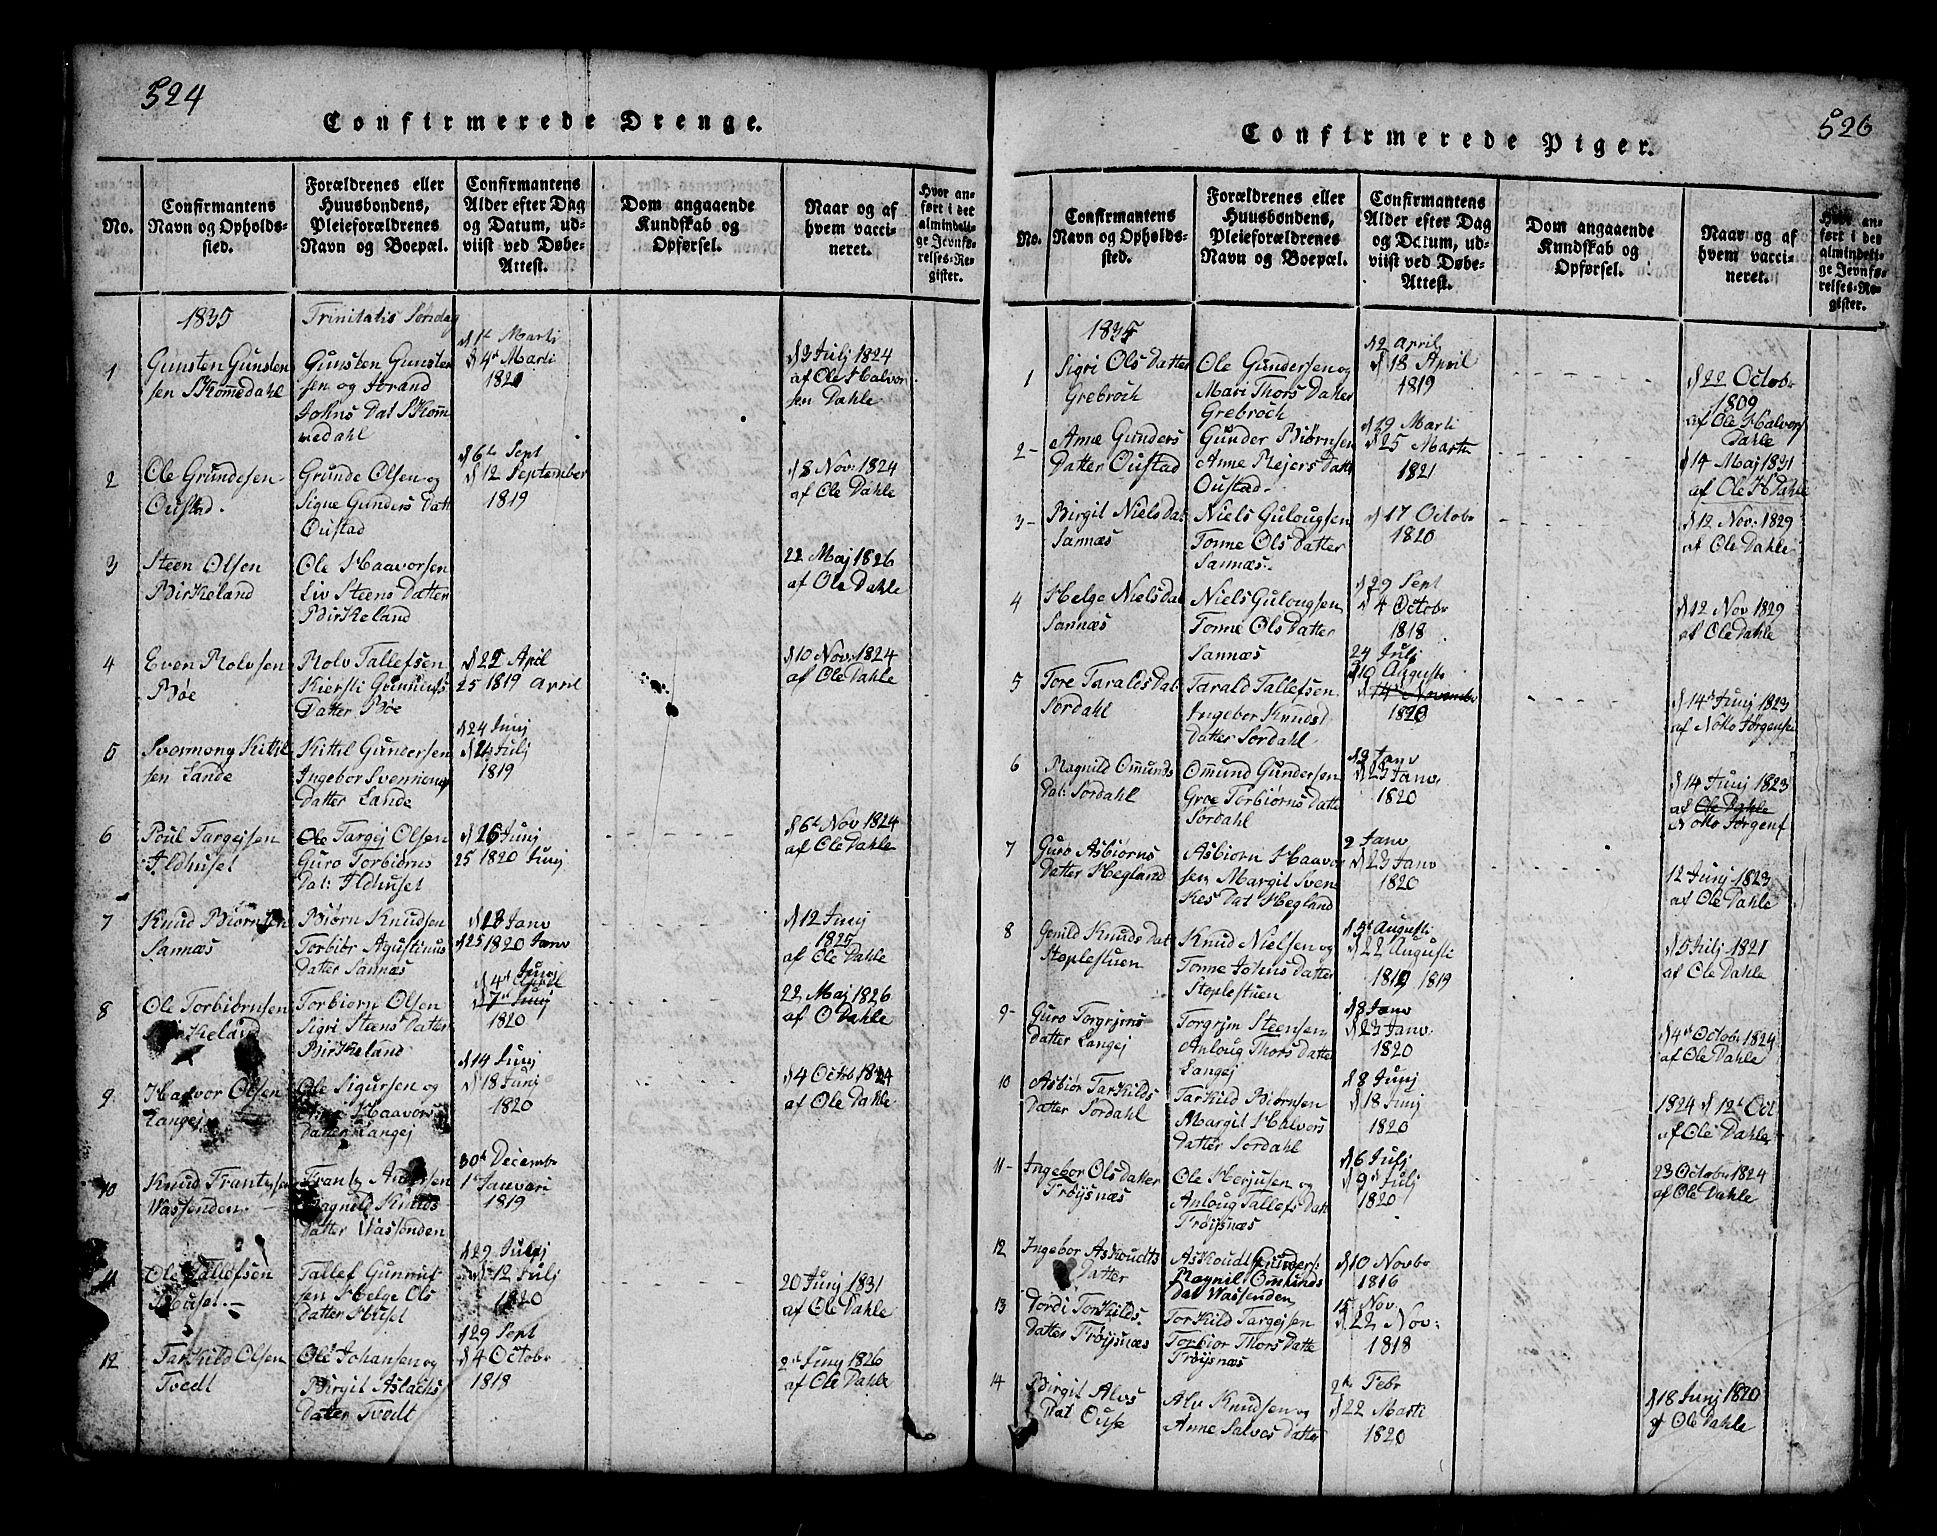 524
Confirmerede Drenge.
No.
Confirmantens
Navn og Opholds-
sted.
Forældrenes eller
Huusbondens,
Pleieforældrenes
Navn og Boepæl.
Confirmantens
Alder efter Dag
og Datum, ud-
viist ved Døbe-
Attest.
Dom angaaende
Kundskab og
Opførsel.
Naar og af
hvem vacci-
neret.
Hvor an-
ført i det
almindeli-
ge Jevnfø-
relses-Re-
gister.
1835
Trinitatis Søndag
1
Gunsten Gunsten
sen Skomedahl
Gunsten Gunsten
sen og Strand
Johns Dat Skom
medahl
d 1st Marti
d 4st Marti
1821
d 3 Julj 1824
af Ole Halvor
sen Dahle
2
Ole Grundesen
Oustad.
Grunde Olsen og
Signe Gunders Datt
Oustad
d 6te Sept
d 12 September
1819
d 8 Nov: 1824
af Ole Dahle
3
Steen Olsen
Birkeland
Ole Haavorsen
Liv Steens Datter
Birkeland
22 Maj 1826
af Ole Dahle
4
Even Rolvsen
Bøe
Rolv Tallefsen
Kiersti Gunnufs
Datter Bøe
d 22 April
25 1819 April
d 10 Nov: 1824
af Ole Dahle
5
Svonnong Kittil
sen Lande
Kittil Gundersen
Ingebor Svennung
datter Lande
d 24 Junj
d 24 Julj
1819
6
Poul Targejsen
Ildhuset
Ole Targej Olsen
Guro Torbiørns
Dat: Ildhuset
d 26 Junj
25 1820 Junj
d 6te Nov 1824
af Ole Dahle
7
Knud Biørnsen
Sannæs
Biørn Knudsen
Torbiør Agustinus
datter Sannæs
d 23 Janv
d 25 1820 Janv
d 12 Junj
1825
af Ole Dahle
8
Ole Torbiørnsen
Torbiørn Olsen
Sigri Steens Datter
Birkeland
d 4st Junj
1820
22 Maj 1826
af O Dahle
9
Halvor Olsen
Langej
Ole Sigursen og
Haavors
datter Langej
d 14 Junj
d 18 Junj
1820
d 4 Octbr 1824
af Ole Dahle
10
Knud Frantzsen
Wassenden.
Frantz Andersen
Ragnild Knuds
datter Wassenden
30te Decembr
1st Januari
1819
11
Ole Tallefsen
Huset.
Tallef Gunnuf
sen Helge Ols
datter Huset
d 29 Julj
d 12 Julj
1820
20 Junj 1831
af Ole Dahle
12
Tarkild Olsen
Tvedt
Ole Johansen og
Birgit Aslachs
Datter Tvedt
d 29 Sept
d 4 Octobr
1818
2st Junj 1826
af Ole Dahle
526
Confirmerede Piger.
No.
Confirmantens
Navn og Opholds-
sted.
Forældrenes eller
Huusbondens,
Pleieforældrenes
Navn og Boepæl.
Confirmantens
Alder efter Dag
og Datum, ud-
viist ved Døbe-
Attest.
Dom angaaende
Kundskab og
Opførsel.
Naar og af
hvem vacci-
neret.
Hvor an-
ført i det
almindeli-
ge Jevnfø-
relses-Re-
gister.
1835
1
Sigri Ols Datter
Grebroch
Ole Gundersen og
Mari Thors Datter
Grebroch
d 2 April
d 18 April
1819
d 22 Octobr
1809
af Ole Halvors
Dahle
2
Anne Gunders
Datter Oustad
Gunder Biørnsen
Anne Rejers Datt
Oustad.
d 19 Marti
d 25 Marti
1821
d 14 Maj 1831
af Ole H Dahle
3
Birgit Niels Dat
Sannæs
Niels Gulougsen
Tonne Ols Datter
Sannæs.
d 17 Octobr
1820
d 12 Nov: 1829
af Ole Dahle
4
Helge Niels dat
Sannæs
Niels Gulougsen
Tonne Ols Datter
Sannæs
d 29 Sept
d 4 Octobr
1818
d 12 Nov 1829
af Ole Dahle
5
Tore Taralds Dat:
Sordahl
Tarald Tallefsen
Ingebor Knuds
datter Sordahl
24 Julj
d 10 Augusti
d 14 Novembr
1820
d 14st Junj 1823
af Notto Jørgense
6
Ragnild Omunds
Dat: Sordahl
Omund Gundersen
Groe Torbiørns Datter
Sordahl
d 9 Janv
d 23 Janv.
1820
d 14 Junj 1823
af Ole Dahle
Notto Jørgens
7
Guro Asbiørns
Datter Hegland
Asbiørn Haavor
sen Margit Sven
kes Dat Hegland
2 Janv
d 23 Janv
1820
12 Junj 1823
af Ole Dahle
8
Gonild Knuds Dat
Stoplestuen
Knud Nielsen og
Tonne Johns Datter
Stoplestuen
d 5t Augusti
d 22 Augusti
1819 1819
d 5 Julj 1821
af Ole Dahle
9
Guro Torgrims
datter Langej
Torgrim Steensen
Anloug Thors Datter
Langej
d 8 Janv
d 23 Janv.
1820
d 4st Octobr 1824
af Ole Dahle
10
Asbiør Tarkilds
Datter Sordahl
Tarkild Biørnsen
Margit Halvors
Datter Sordahl
d 8 Junj
d 18 Junj
1820
1824 d 12te Oct
af Ole Dahle
11
Ingebor Ols datter
Frøysnæs
Ole Herjusen og
Anloug Tallefs Datt
Frøysnæs
d 6 Julj
d 9st Julj
1820
23 Octobr 1824
af Ole Dahle
12
Ingebor Askoudts
Datter
Askoudt Gunders:
Ragnil Omunds
Dat Wassenden
d 10 Novbr
1816
13
Tordi Torkilds
datter Frøysnæs
Torkild Targejsen
Torbior Thors Datte
Frøysnæs
15 Nov.
d 22 Nov:
1818
14
Birgit Alvs
Dat Ouse
Alv Knudsen og
Anne Salvos Datter
2te Febr
d 22 Marti
1820
d 18 Junj 1820
af Ole Dahle